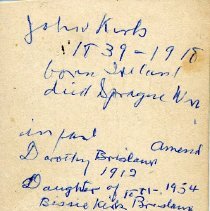 John Kirk
1839-1918
born Ireland
died Sprague Wn
infant
Dorothy Brislawn Amend
1912
Daughter of 1881-1954
Bessie Kirk Brislawn